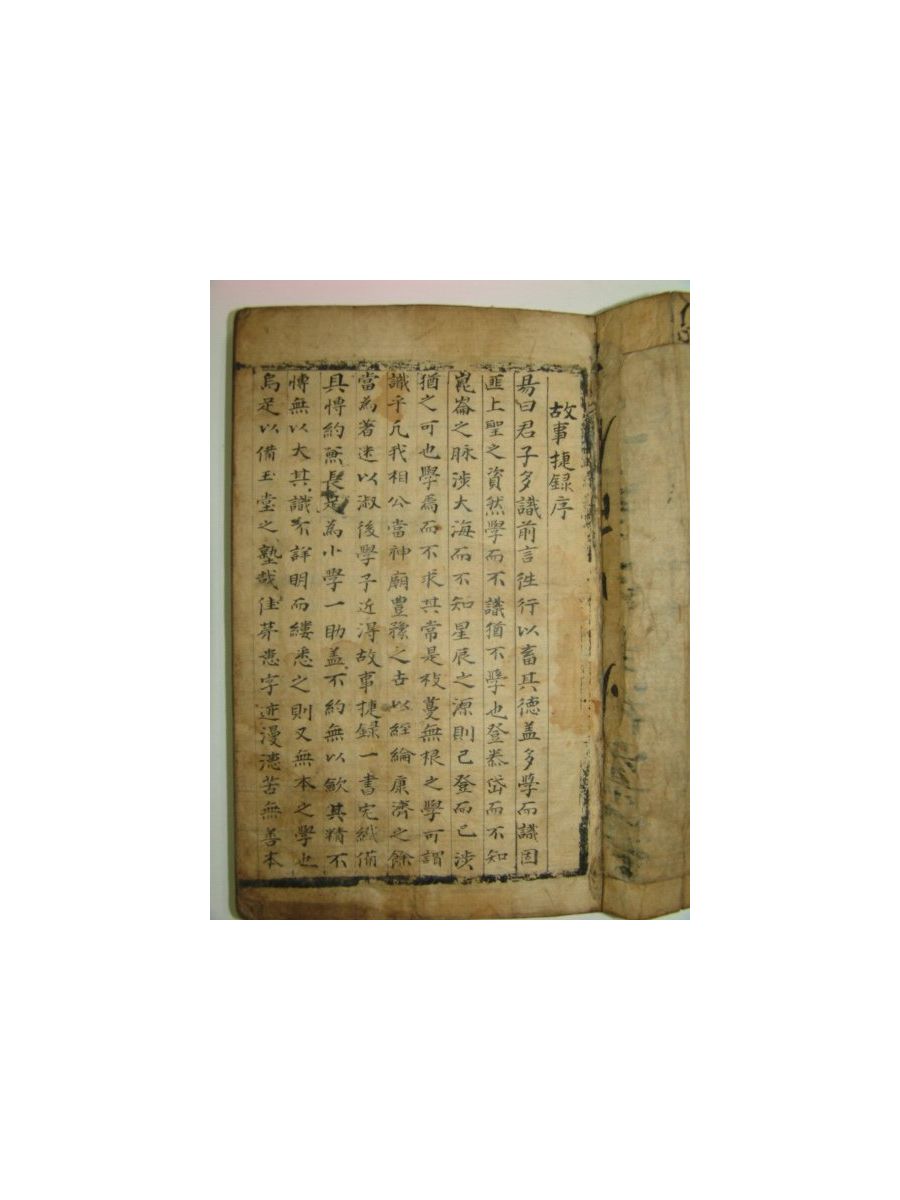 故事捷録序
易曰君子多識前言往行以畜其德盖多學而識因
匪上聖之資然學而不識猶不學也登泰岱而不知
崑崙之脉涉大海而不知星辰之源則已登而已涉
猶之可也學焉而不求其常是枝蔓無根之學可謂
識乎凡我相公當神廟豊豫之古以經綸康濟之餘
當為著述以淑後學子近淂故事捷録一書完纖備
具愽約兼長足為小學一助盖不約無以歛其精不
愽無以大其識不詳明而縷悉之則又無本之學也
烏足以備玉堂之塾哉佳茅恚字迹漫漶苦無善本